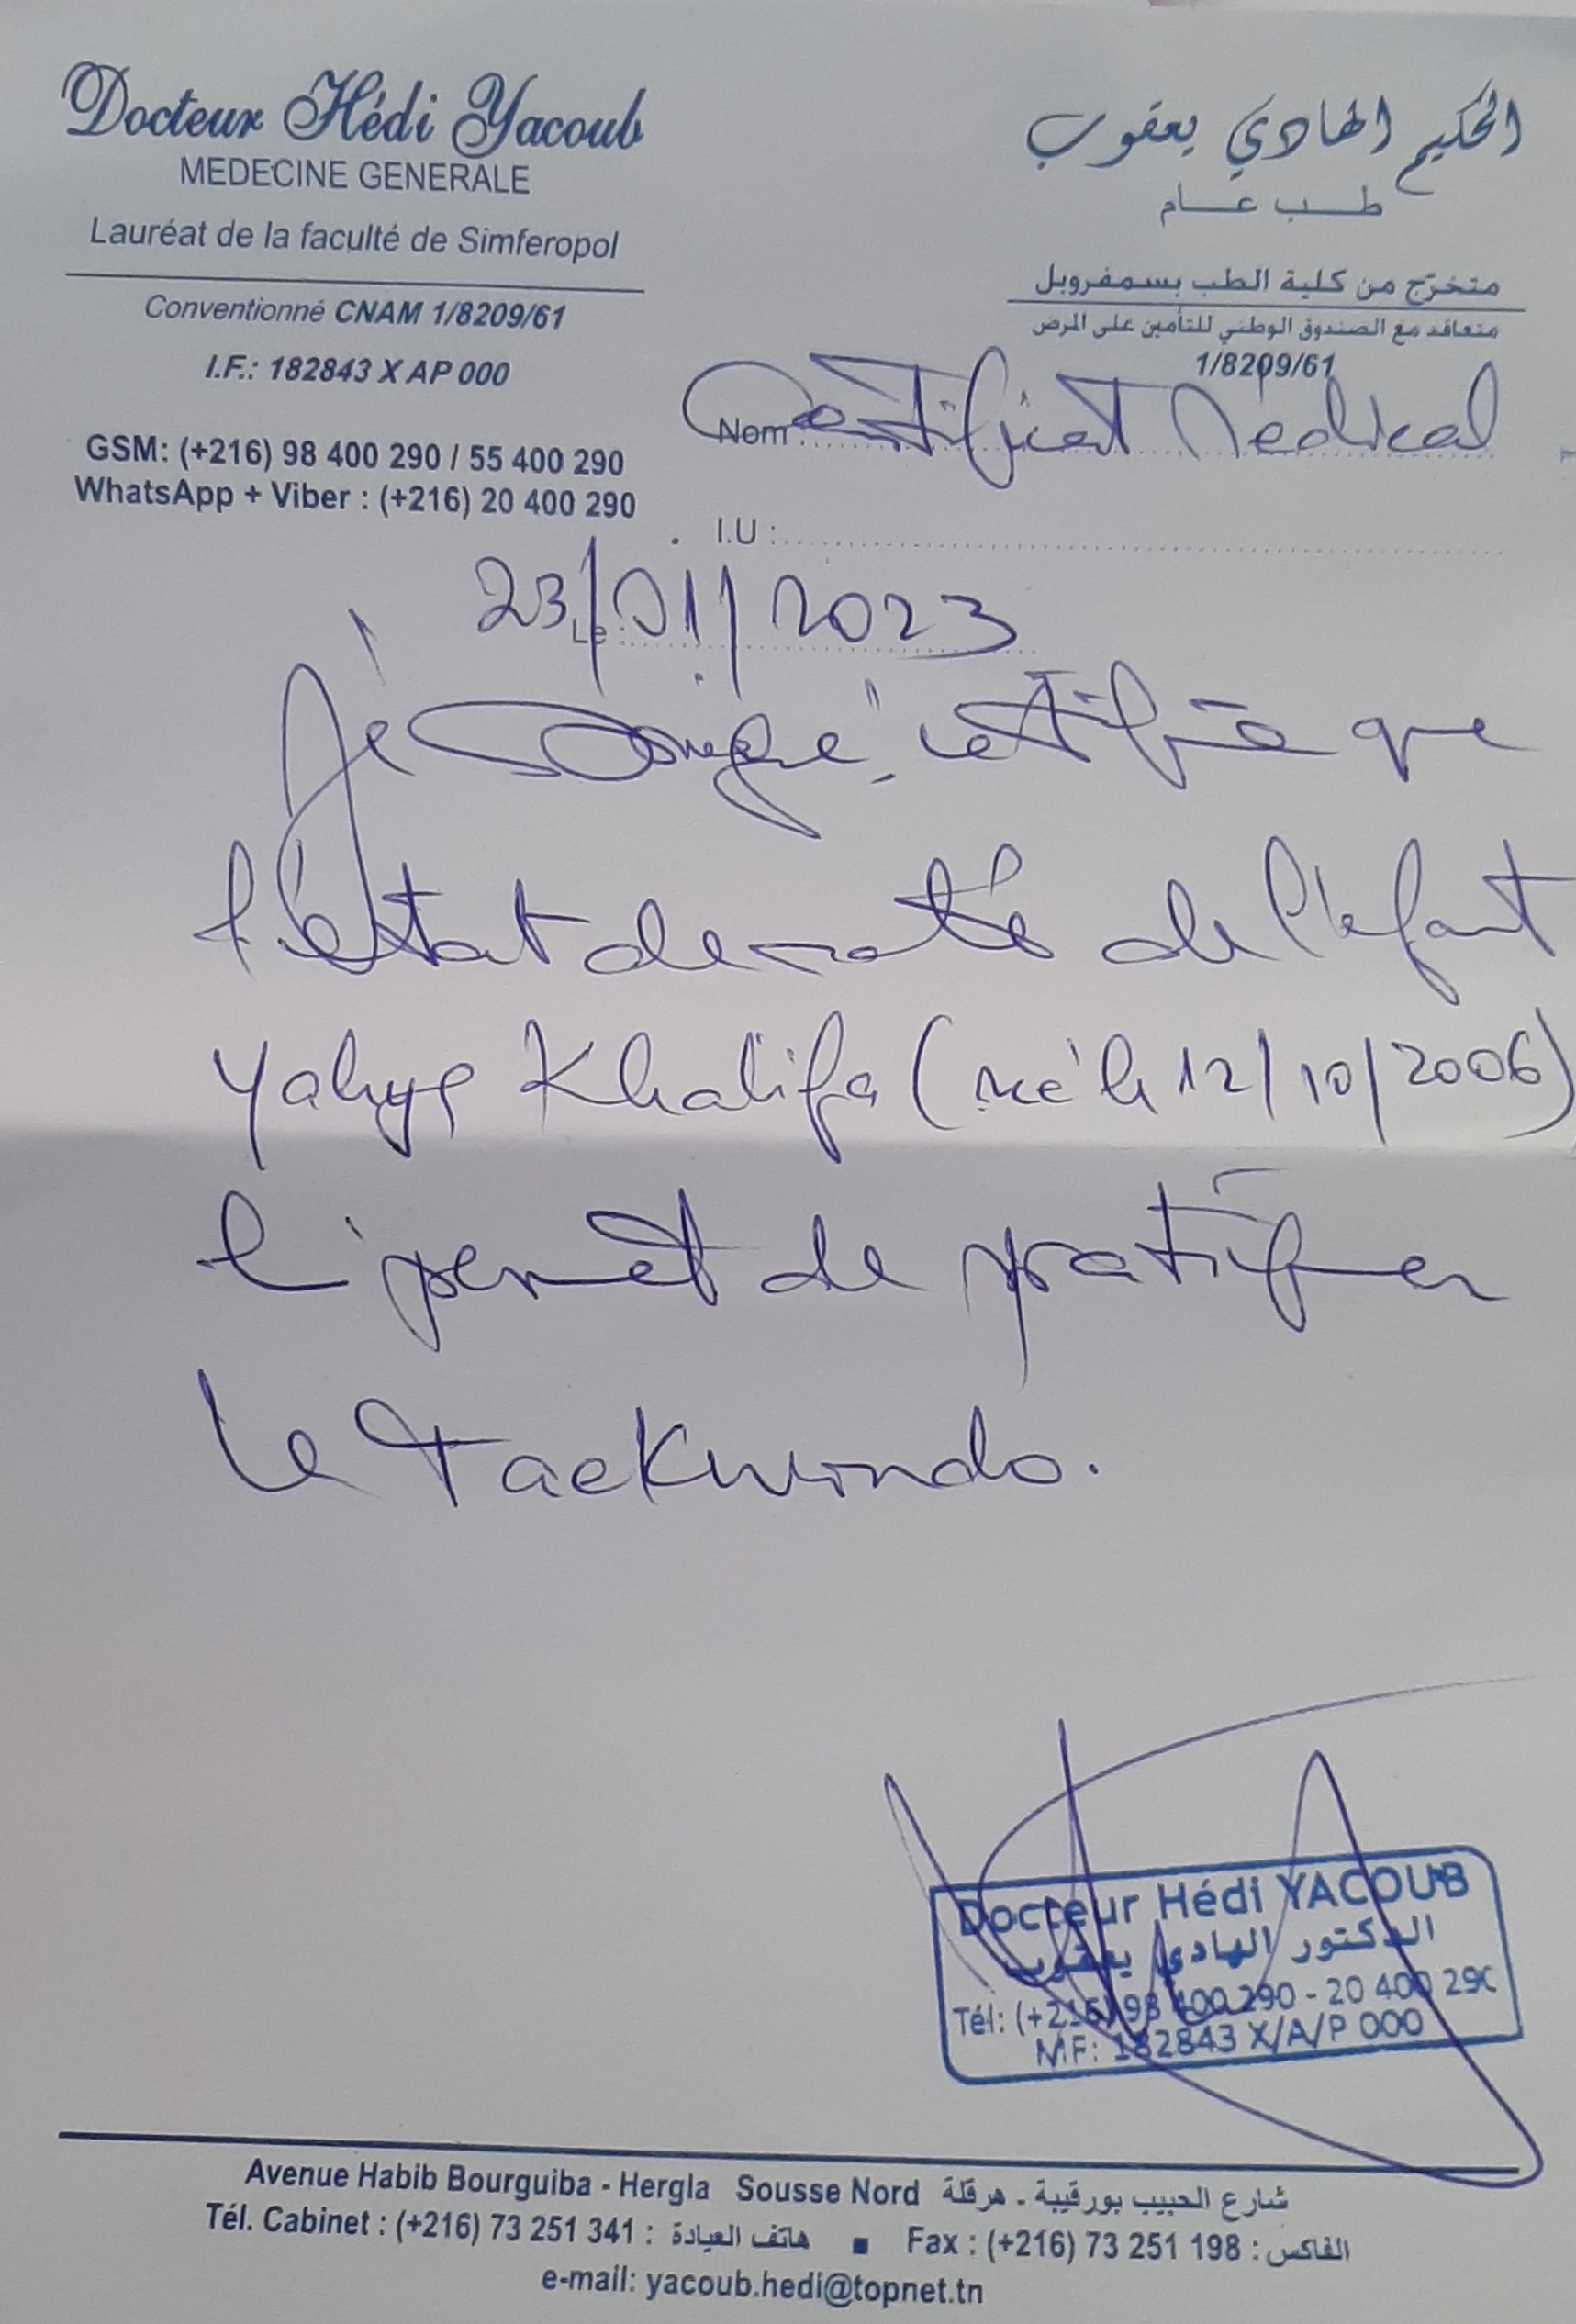 Docteur Hédi Yacoub
MEDECINE GENERALE
Lauréat de la faculté de Simferopol
Conventionné CNAM 1/8209/61
I.F.: 182843 X AP 000
GSM: (+216) 98 400 290 / 55 400 290
WhatsApp + Viber : (+216) 20 400 290
الحكيم الهادي يعقوب
طب عام
متخرّج من كلية الطب بسمفروبل
متعاقد مع الصندوق الوطني للتأمين على المرض
1/8209/61
Nom : Certificat Médical
I.U :
Le : 23/01/2023
Je soussigné, certifie que
l'état de santé de l'enfant
Yahya Khalifa (né le 12/10/2006)
lui permet de pratiquer
le Taekwondo.
Docteur Hédi YACOUB
الدكتور الهادي يعقوب
Tél: (+216) 98 400 290 - 20 400 290
MF: 182843 X/A/P 000
Avenue Habib Bourguiba - Hergla Sousse Nord شارع الحبيب بورقيبة - هرقلة
Tél. Cabinet : (+216) 73 251 341 : هاتف العيادة ■ Fax : (+216) 73 251 198 : الفاكس
e-mail: yacoub.hedi@topnet.tn